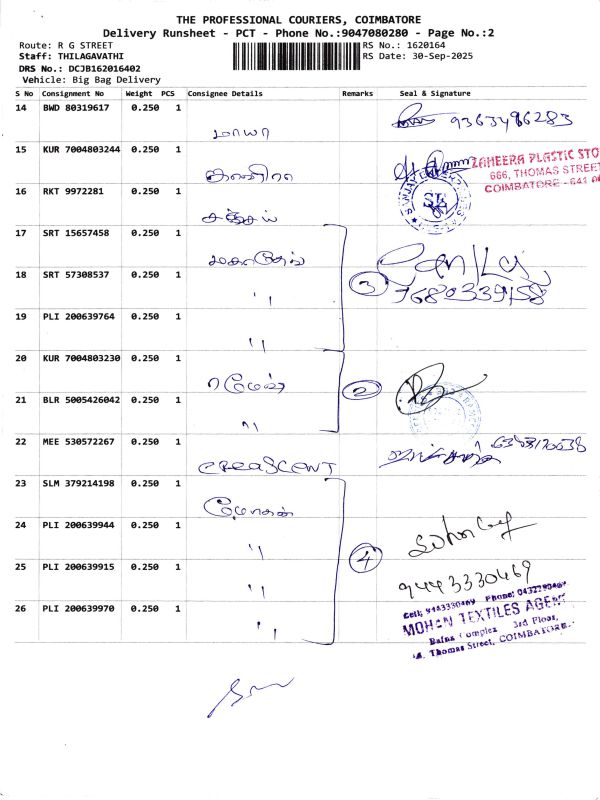 THE PROFESSIONAL COURIERS, COIMBATORE
Delivery Runsheet - PCT - Phone No.:9047080280 - Page No.:2
Route: R G STREET
RS No.: 1620164
Staff: THILAGAVATHI
RS Date: 30-Sep-2025
DRS No.: DCJB162016402
Vehicle: Big Bag Delivery
S No Consignment No Weight PCS Consignee Details Remarks Seal & Signature
14 BWD 80319617 0.250 1 மாயா 9363496283
15 KUR 7004803244 0.250 1
ZAHEERA PLASTIC STO
666, THOMAS STREET
COIMBATORE - 641 0
16 RKT 9972281 0.250 1 சஞ்சய்
17 SRT 15657458 0.250 1
18 SRT 57308537 0.250 1 " 3 7680339158
19 PLI 200639764 0.250 1 "
20 KUR 7004803230 0.250 1 ரமேஷ்
21 BLR 5005426042 0.250 1 " 2
22 MEE 530572267 0.250 1 CREASCENT
23 SLM 379214198 0.250 1 மோகன்
24 PLI 200639944 0.250 1 "
25 PLI 200639915 0.250 1 " 4 9443330469
26 PLI 200639970 0.250 1 "
Cell: 9443330469 Phone: 
MOHAN TEXTILES AGENT
Complex 3rd Floor,
Thomas Street, COIMBATORE.